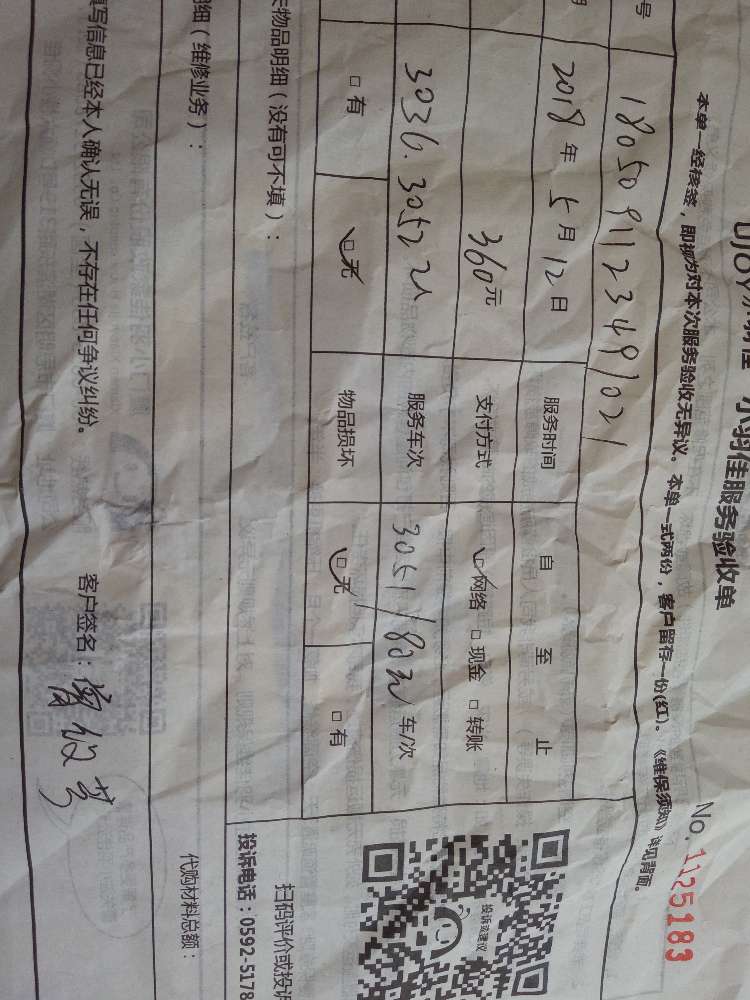 小羽佳服务验收单
No. 1125183
本单一经核签，即视为对本次服务验收无异议。本单一式两份，客户留存一份(红)。《维保须知》详见背面。
号 1805091123491021
2018年5月12日 服务时间 自 至 止
360元 支付方式 ☑网络 □现金 □转账
3036.3052 服务车次 3051/ 车/次
□有 ☑无 物品损坏 ☑无 □有
物品明细（没有可不填）：
细（维修业务）：
代购材料总额：
填写信息已经本人确认无误，不存在任何争议纠纷。
客户签名：
投诉或建议
扫码评价或投诉
投诉电话：0592-5178